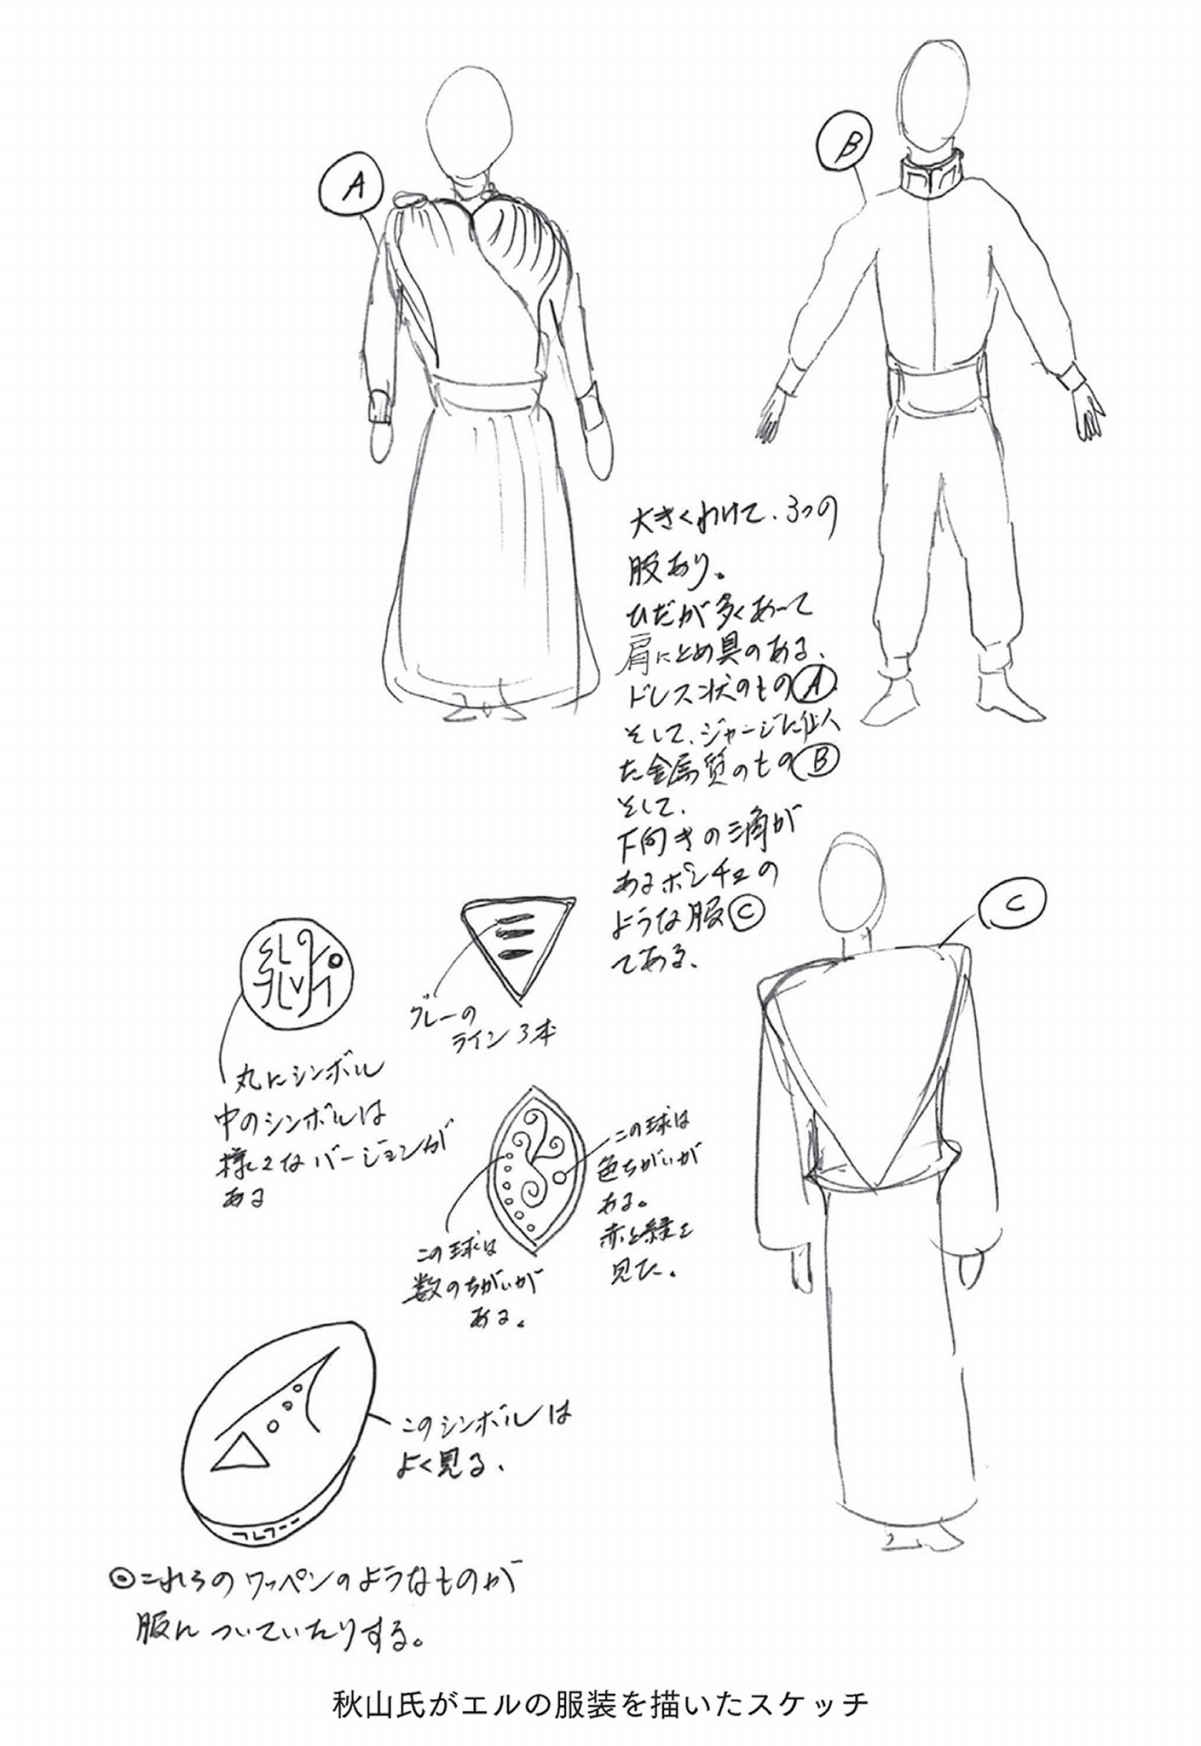 A
B
大きくわけて、3つの
服あり。
ひだが多くあって
肩にとめ具のある、
ドレス状のものA
そして、ジャージに似
た金属質のものB
そして、
下向きの三角が
あるポンチョの
ような服C
である、
C
グレーの
ライン3本
丸にシンボル
中のシンボルは
様々なバージョンが
ある
この球は
色ちがいが
ある。
赤と緑を
見た。
この球は
数のちがいが
ある。
このシンボルは
よく見る、
◎これらのワッペンのようなものが
服についていたりする。
秋山氏がエルの服装を描いたスケッチ